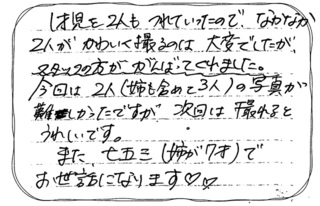 1才児を2人も つれていったので、なかなか
2人が かわいく撮るのは 大変でしたが
スタッフの方が がんばってくれました。
今回は 2人(姉も含めて3人)の写真が
難しかったですが 次回は 撮れると
うれしいです。
また、七五三(姉が7才)で
お世話になります♡♡